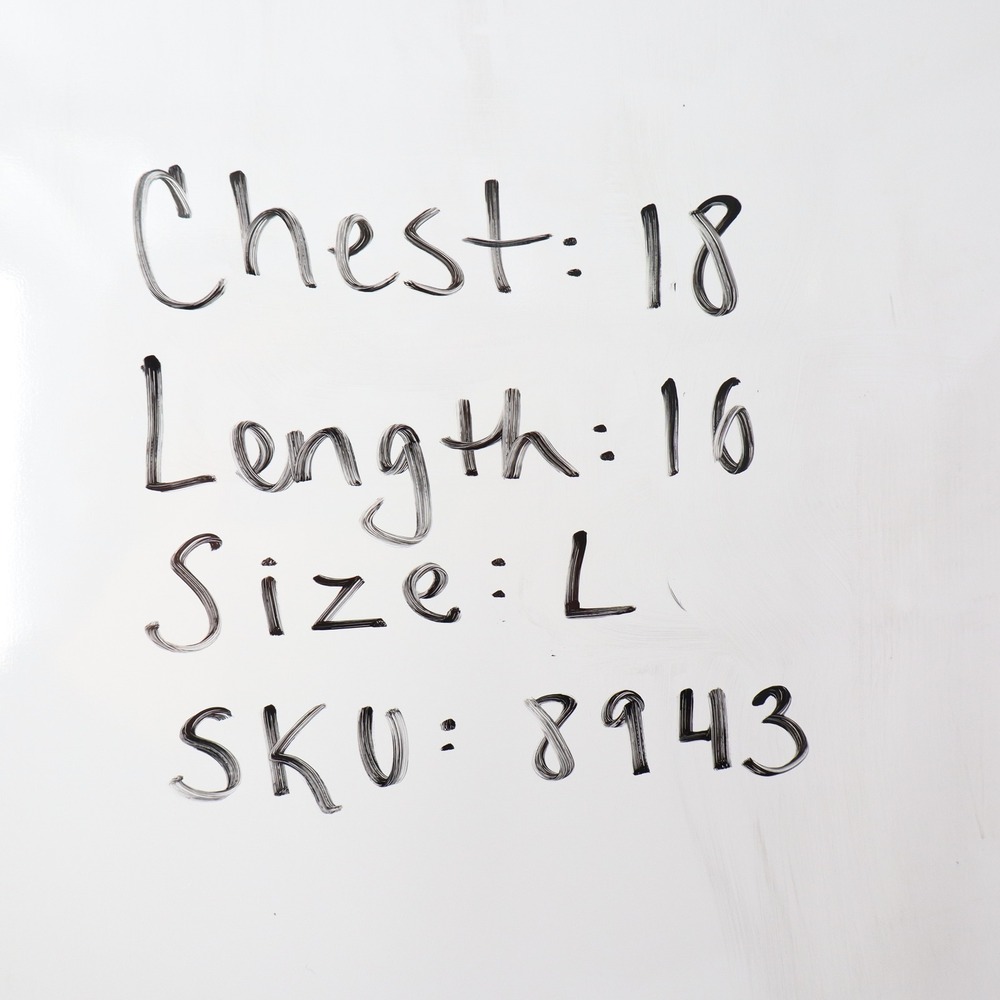 Chest: 18
Length: 16
Size: L
SKU: 8943